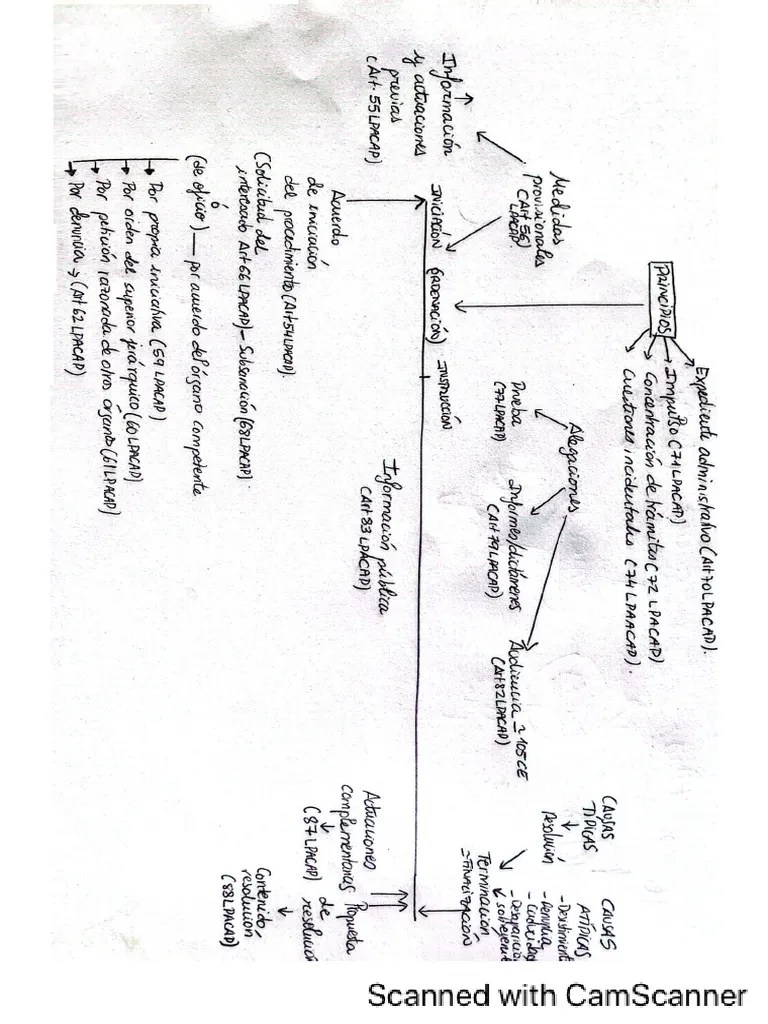 PRINCIPIOS
Expediente administrativo (Art 70 LPACAP).
Impulso (71 LPACAP)
Concentración de trámites (72 LPACAP)
Cuestiones incidentales (74 LPAACAP).
Medidas
provisionales
(Art 56
LPACAP)
Información
y actuaciones
previas
(Art. 55 LPACAP)
INICIACIÓN
ORDENACIÓN
INSTRUCCIÓN
Alegaciones
Prueba
(77 LPACAP)
Informes/dictámenes
(Art 79 LPACAP)
Audiencia → 105 CE
(Art 82 LPACAP)
CAUSAS
TÍPICAS
Resolución
CAUSAS
ATÍPICAS
- Desistimient
- Renuncia
- Caducidad
- Desaparición
sobrejenut
Terminación
→ FINALIZACIÓN
Acuerdo
de iniciación
del procedimiento (Art 54 LPACAP).
(Solicitud del
interesado Art 66 LPACAP) – Subsanación (68 LPACAP).
ó
(de oficio) — por acuerdo del órgano competente
Por propia iniciativa (59 LPACAP)
Por orden del superior jerárquico (60 LPACAP)
Por petición razonada de otro órgano (61 LPACAP)
Por denuncia → (Art 62 LPACAP)
Información pública
(Art 83 LPACAP)
Actuaciones
complementarias
(87 LPACAP)
Propuesta
de
resolución
Contenido
resolución
(88 LPACAP)
Scanned with CamScanner